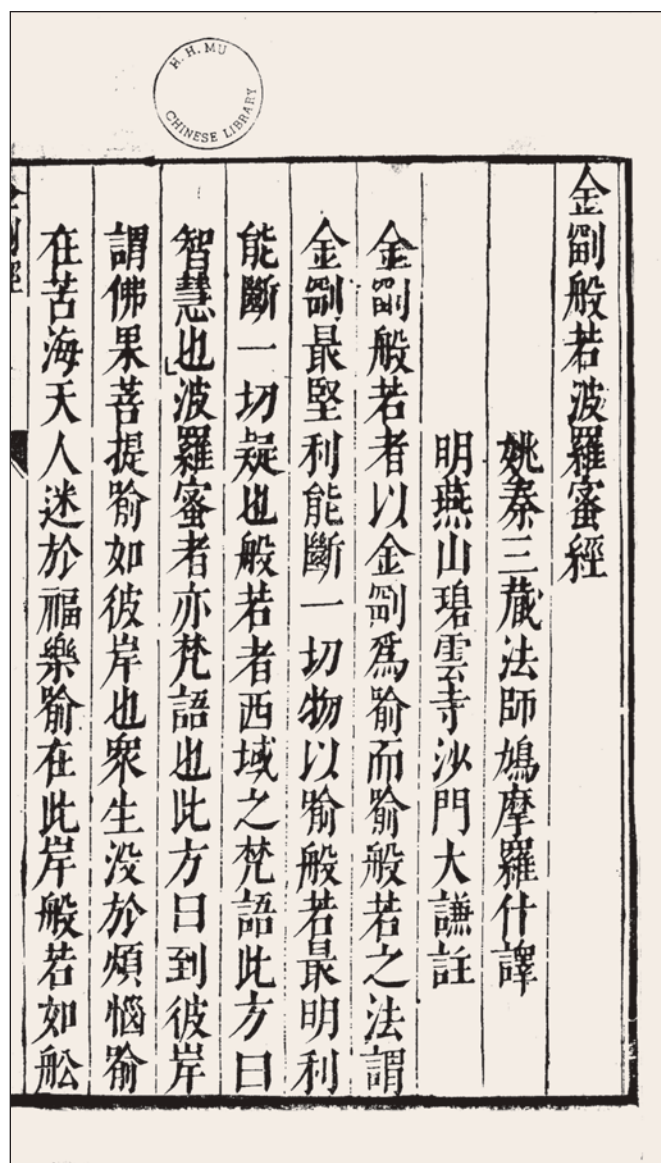 H. H. MU
CHINESE LIBRARY
金剛般若波羅蜜經
姚秦三藏法師鳩摩羅什譯
明燕山碧雲寺沙門大謙註
金剛般若者以金剛爲喻而喻般若之法謂
金剛最堅利能斷一切物以喻般若最明利
能斷一切疑也般若者西域之梵語此方曰
智慧也波羅蜜者亦梵語也此方曰到彼岸
謂佛果菩提喻如彼岸也衆生没於煩惱喻
在苦海天人迷於福樂喻在此岸般若如舩
金剛經